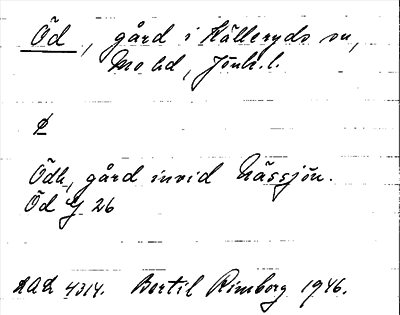 Öd, gård i Källeryds sn,
Mo hd, Jönk. l.
Ödh, gård invid Nässjön.
Öd 26
4314. Bertil Rimborg 1946.